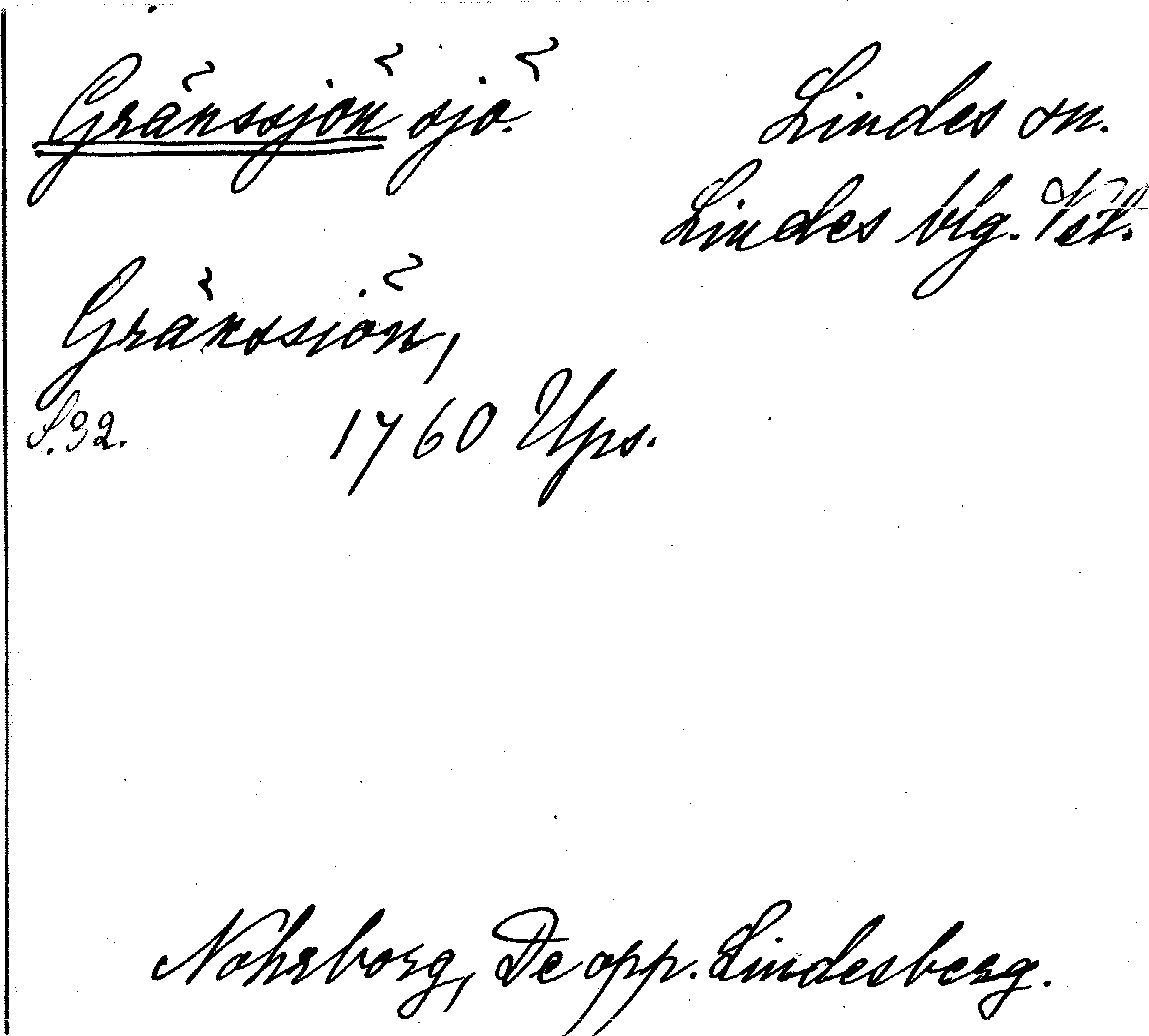 Gränssjön sjö.
Lindes sn.
Lindes blg. Vst.
Gränssiön,
S. 32. 1760 Ups.
Nohrborg, De opp. Lindesberg.